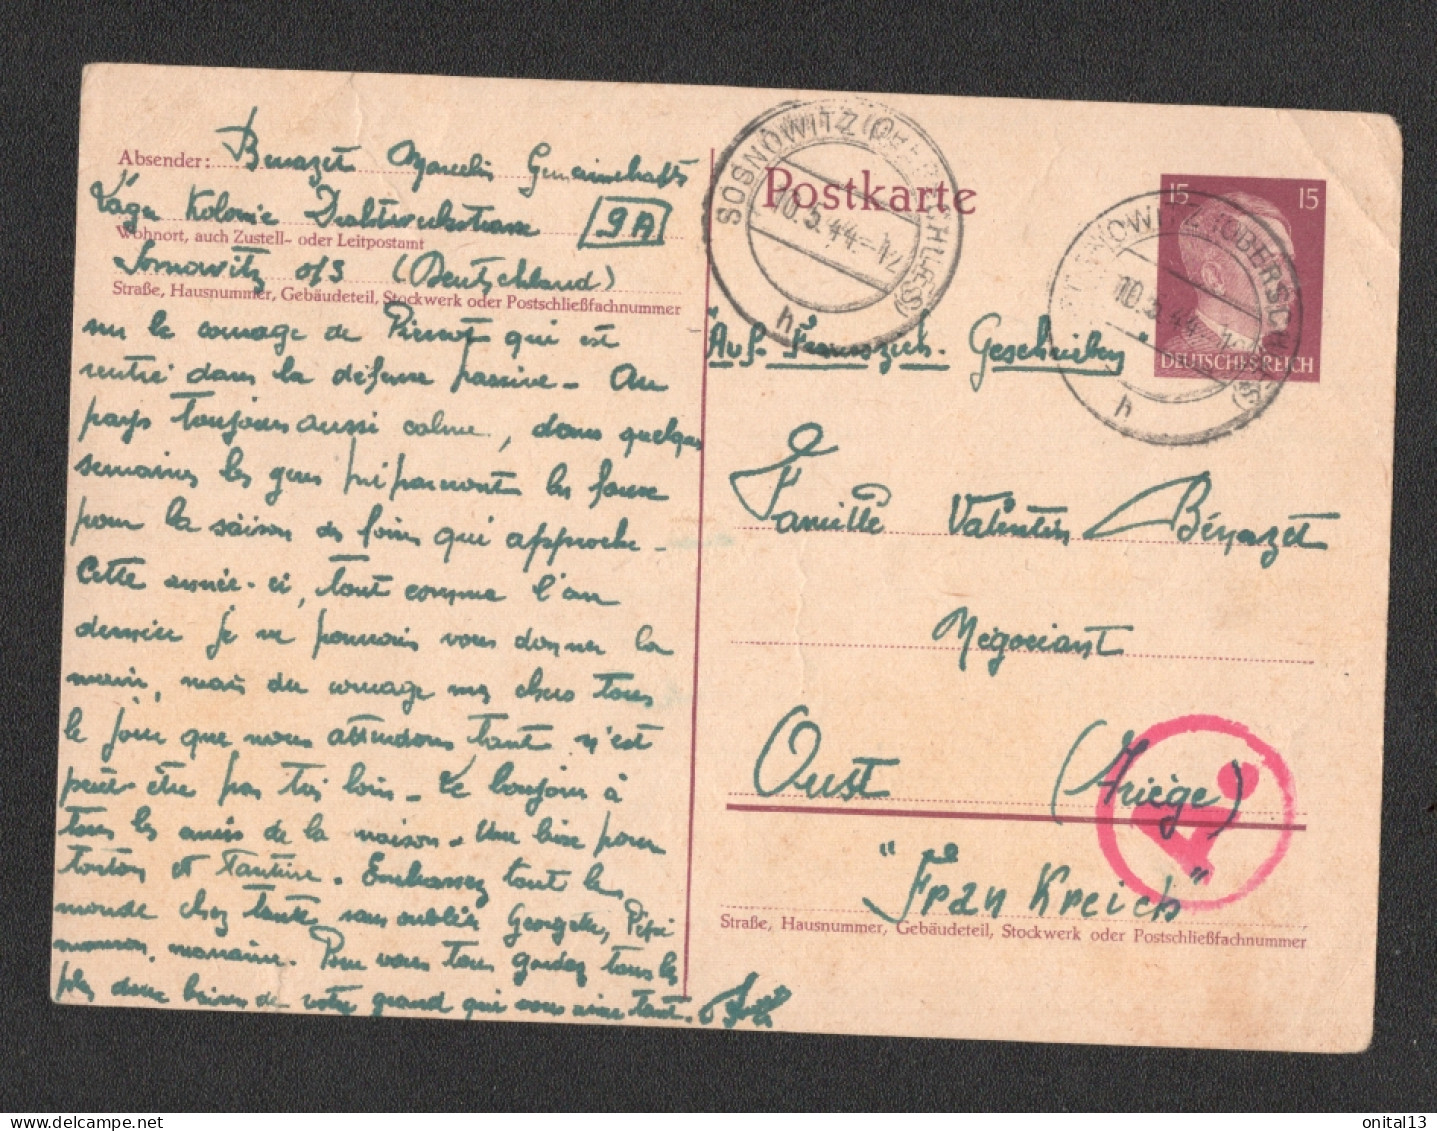 Absender: Benazet Marcelin Gemeinschafts
Läger Kolonie Drahtwerkstrasse 9A
Wohnort, auch Zustell- oder Leitpostamt
Sosnowitz o/s (Deutschland)
Straße, Hausnummer, Gebäudeteil, Stockwerk oder Postschließfachnummer
sur le courage de Pierrot qui est
rentré dans la défense passive - Au
pays toujours aussi calme, dans quelques
semaines les gens prépareront les faux
pour la saison des foins qui approche -
Cette année-ci, tout comme l'an
dernier je ne pourrais vous donner la
main, mais du courage mes chers tous
le jour que nous attendons tant n'est
peut être pas très loin - Le bonjour à
tous les amis de la maison - Une bise pour
tonton et Tantine. Embrassez tout le
monde chez tante sans oublier Georgette, Pépi
mounou, marraine. Pour vous tous gardez tous les
plus doux baisers de votre grand qui vous aime tant.
Postkarte
SOSNOWITZ (OBERSCHLES)
10.5.44-12
h
SOSNOWITZ (OBERSCHLES)
10.5.44
h
15 15
DEUTSCHES REICH
Auf. Französich. Geschrieben
Famille Valentin Bénazet
Négociant
Oust (Ariège)
"Frankreich"
A.
Straße, Hausnummer, Gebäudeteil, Stockwerk oder Postschließfachnummer
onital13